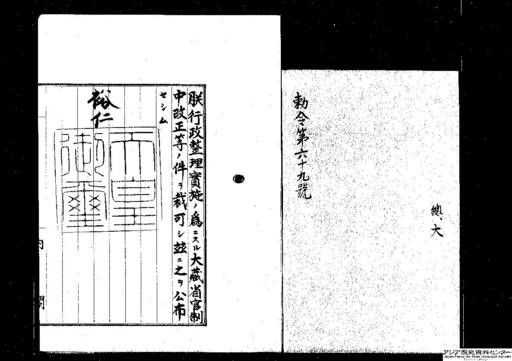 總、大
勅令第六十九號
朕行政整理實施ノ爲ニスル大藏省官制
中改正等ノ件ヲ裁可シ茲ニ之ヲ公布
セシム
裕仁
天皇
御璽
内閣
アジア歴史資料センター